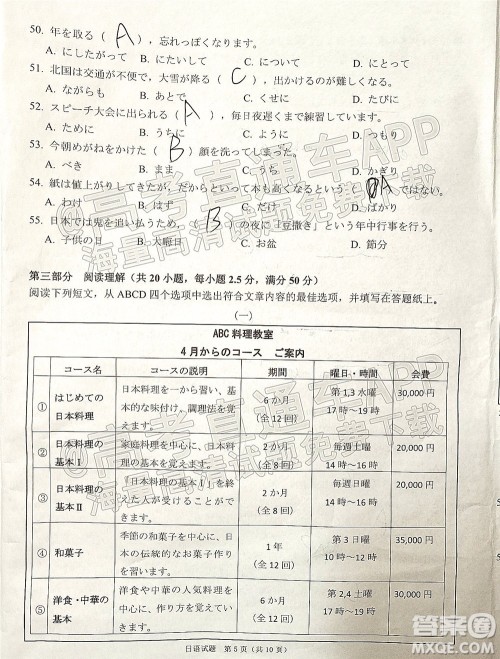 50. 年を取る（ A ），忘れっぽくなります。
A. にしたがって B. にたいして C. について D. にとって
51. 北国は交通が不便で，大雪が降る（ C ），出かけるのが難しくなる。
A. ながらも B. あとで C. くせに D. たびに
52. スピーチ大会に出られる（ A ），毎日夜遅くまで練習しています。
A. ために B. うちに C. ように D. つもり
53. 今朝めがねをかけた（ B ）顔を洗ってしまった。
A. べき B. まま C. うち D. かぎり
54. 紙は値上がりしてきたが，だからといって本も高くなるという（ A ）ではない。
A. わけ B. はず C. だけ D. ばかり
55. 日本では鬼を追い払うため，（ B ）の夜に「豆撒き」という年中行事を行う。
A. 子供の日 B. 大晦日 C. お盆 D. 節分
第三部分 阅读理解（共 20 小题，每小题 2.5 分，满分 50 分）
阅读下列短文，从 ABCD 四个选项中选出符合文章内容的最佳选项，并填写在答题纸上。
（一）
ABC 料理教室
4 月からのコース ご案内
コース名 コースの説明 期間 曜日・時間 会費
① はじめての日本料理 日本料理を一から習い、基本的な味付け、調理法を覚えます。 6 か月（全 12 回） 第 1,3 水曜 17 時～19 時 30,000 円
② 日本料理の基本Ⅰ 家庭料理を中心に、日本料理の基本を覚えます。 2 か月（全 8 回） 毎週土曜 14 時～16 時 20,000 円
③ 日本料理の基本Ⅱ 「日本料理の基本Ⅰ」を終えた人が受けることができます。 2 か月（全 8 回） 毎週日曜 14 時～16 時 20,000 円
④ 和菓子 季節の和菓子を中心に、日本の伝統的なお菓子を作ります。 1 年（全 12 回） 第 3 日曜 10 時～12 時 35,000 円
⑤ 洋食・中華の基本 洋食や中華の人気料理を中心に、作り方を覚えていきます。 6 か月（全 12 回） 第 2,4 土曜 17 時～19 時 30,000 円
日语试题 第 5 页（共 10 页）
@高考直通车APP
海量高清试题免费下载
答案圈